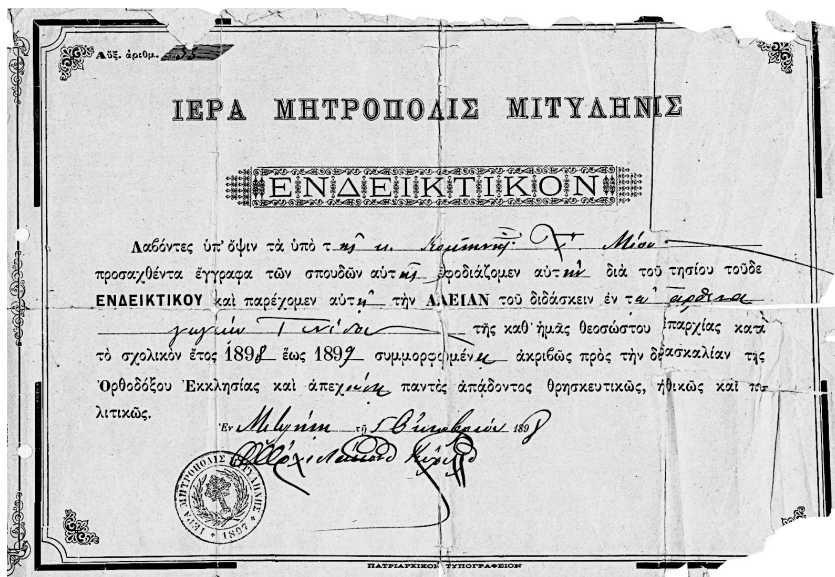 Αὔξ. ἀριθμ.
ΙΕΡΑ ΜΗΤΡΟΠΟΛΙΣ ΜΙΤΥΛΗΝΙΣ
ΕΝΔΕΙΚΤΙΚΟΝ
Λαβόντες ὑπ' ὄψιν τὰ ὑπὸ τῆς κ.
προσαχθέντα ἔγγραφα τῶν σπουδῶν αὐτῆς ἐφοδιάζομεν αὐτὴν διὰ τοῦ τησίου τοῦδε
ΕΝΔΕΙΚΤΙΚΟΥ καὶ παρέχομεν αὐτῇ τὴν ΑΔΕΙΑΝ τοῦ διδάσκειν ἐν τῷ
τῆς καθ' ἡμᾶς θεοσώστου ἐπαρχίας κατὰ
τὸ σχολικὸν ἔτος 1898 ἕως 1899 συμμορφωμένη ἀκριβῶς πρὸς τὴν
τῆς
Ὀρθοδόξου Ἐκκλησίας καὶ ἀπεχούσῃ παντὸς ἀπᾴδοντος θρησκευτικῶς, ἠθικῶς καὶ πο
λιτικῶς.
Ἐν Μιτυλήνῃ τῇ 5 Ὀκτωβρίου 1898
ΙΕΡΑ ΜΗΤΡΟΠΟΛΙΣ ΜΙΤΥΛΗΝΗΣ
1897
ΠΑΤΡΙΑΡΧΙΚΟΝ ΤΥΠΟΓΡΑΦΕΙΟΝ